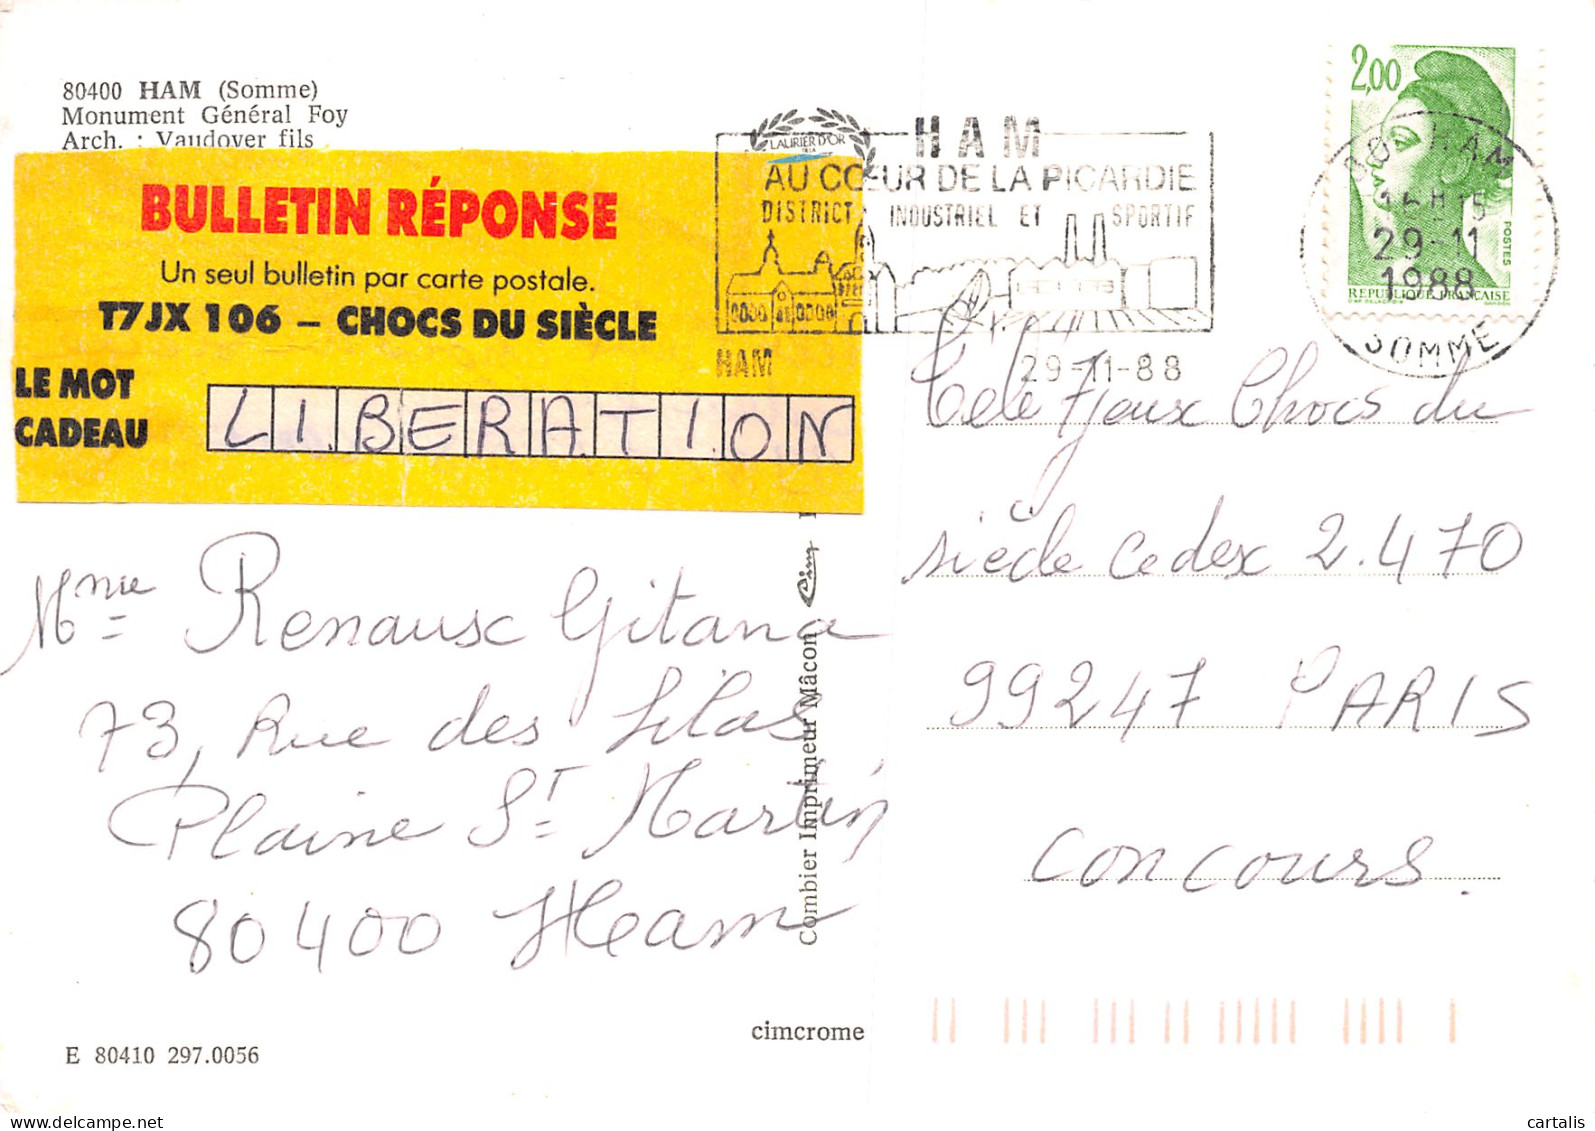 80400 HAM (Somme)
Monument Général Foy
Arch. : Vaudoyer fils
BULLETIN RÉPONSE
Un seul bulletin par carte postale.
T7JX 106 – CHOCS DU SIÈCLE
LE MOT
CADEAU
LIBERATION
Mme Renaux Gitana
73, Rue des Lilas
Plaine St Martin
80400 Ham
E 80410 297.0056
cimcrome
Combier Imprimeur Mâcon Cim
LAURIER D'OR
DE LA
HAM
AU CŒUR DE LA PICARDIE
DISTRICT INDUSTRIEL ET SPORTIF
HAM
29-11-88
2,00
POSTES
REPUBLIQUE FRANÇAISE
HAM
16H15
29-11
1988
SOMME
Télé 7 Jeux Chocs du
siècle Cedex 2.470
99247 PARIS
Concours.
cartalis